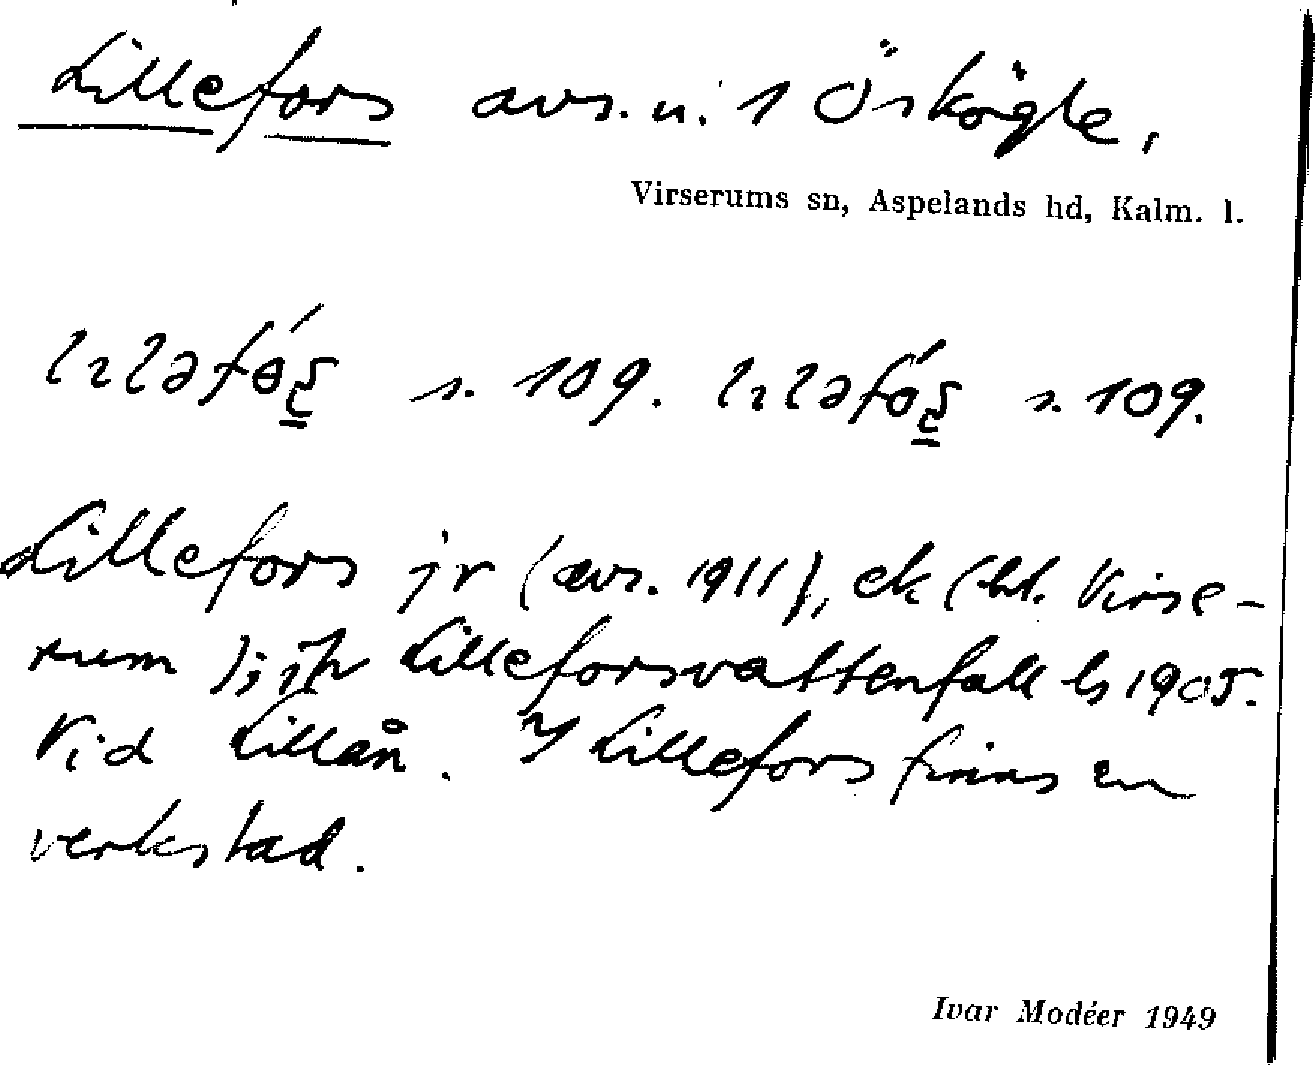 Lillefors avs. u. 1 Öskögle,
Virserums sn, Aspelands hd, Kalm. l.
s. 109. s. 109.
Lillefors jr (avs. 1911), ek (bl. Virse-
rum); jfr Lilleforsvattenfall ls 1905.
Vid Lillån. I Lillefors finns en
verkstad.
Ivar Modéer 1949